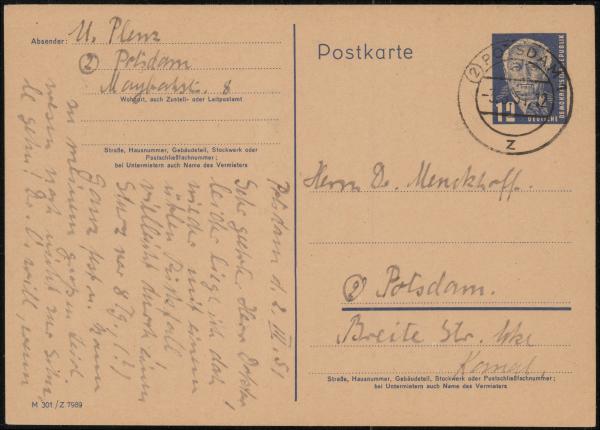 Absender: U. Plenz
(2) Potsdam
Maybachstr. 8
Wohnort, auch Zustell- oder Leitpostamt
Straße, Hausnummer, Gebäudeteil, Stockwerk oder
Postschließfachnummer;
bei Untermietern auch Name des Vermieters
Postkarte
(2) POTSDAM
12
DEUTSCHE
DEMOKRATISCHE REPUBLIK
Z
Herrn Dr. Menckhoff.
(2) Potsdam.
Breite Str. Ecke
Straße, Hausnummer, Gebäudeteil, Stockwerk oder Postschließfachnummer;
bei Untermietern auch Name des Vermieters
Potsdam d. 2. 51
Sehr geehrt. Herr Doktor!
leider liege ich doch
wieder mit einem
üblen Rückfall
vielleicht durch einen
Sturz vor 8 Tg. (!)
Ganz fest u. kann
zu meinem großen Leid
wesen noch nicht zur
gehn! Dr. U. will, wenn
M 301 / Z 7989